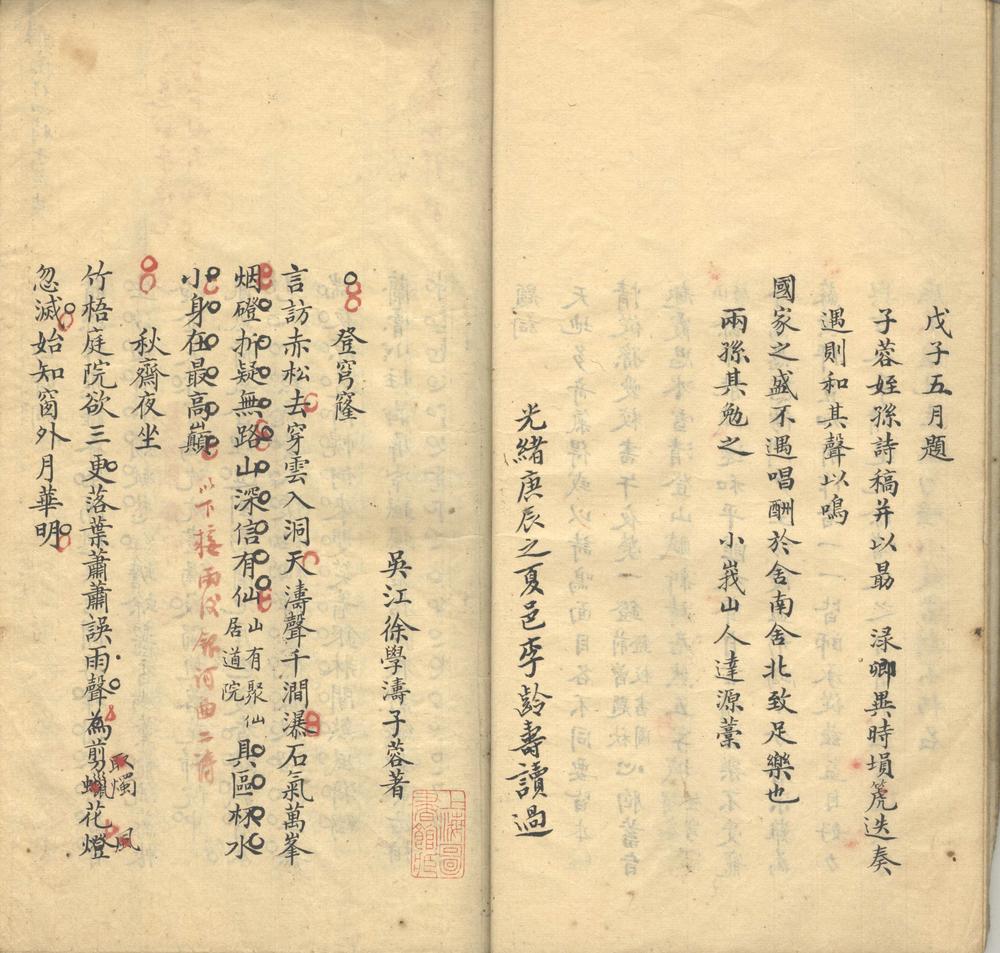 戊子五月題
子蓉姪孫詩稿并以勗之淥卿異時塤箎迭奏
遇則和其聲以鳴
國家之盛不遇唱酬於舍南舍北致足樂也
兩孫其勉之　小峩山人達源藳
光緒庚辰之夏邑李齡壽讀過
吳江徐學濤子蓉著
登穹窿
言訪赤松去穿雲入洞天濤聲千澗瀑石氣萬峯
烟磴拆疑無路山深信有仙山有聚仙居道院具區杯水
小身在最高巔
以下接雨後
秋齋夜坐
竹梧庭院欲三更落葉蕭蕭誤雨聲為剪蠟花燈
取燭
風
忽滅始知窗外月華明
上海圖書館藏